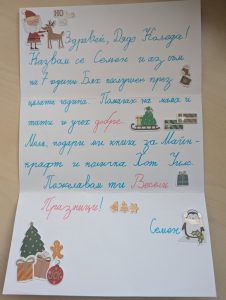 HO
Здравей, Дядо Коледа!
Казвам се Семен и аз съм
на 7 години. Бях послушен през
цялата година. Помагах на мама и
тати и учех добре.
Моля, подари ми книга за Майн-
крафт и писта Хот Уилс.
Пожелавам ти Весели
Празници!
Семен